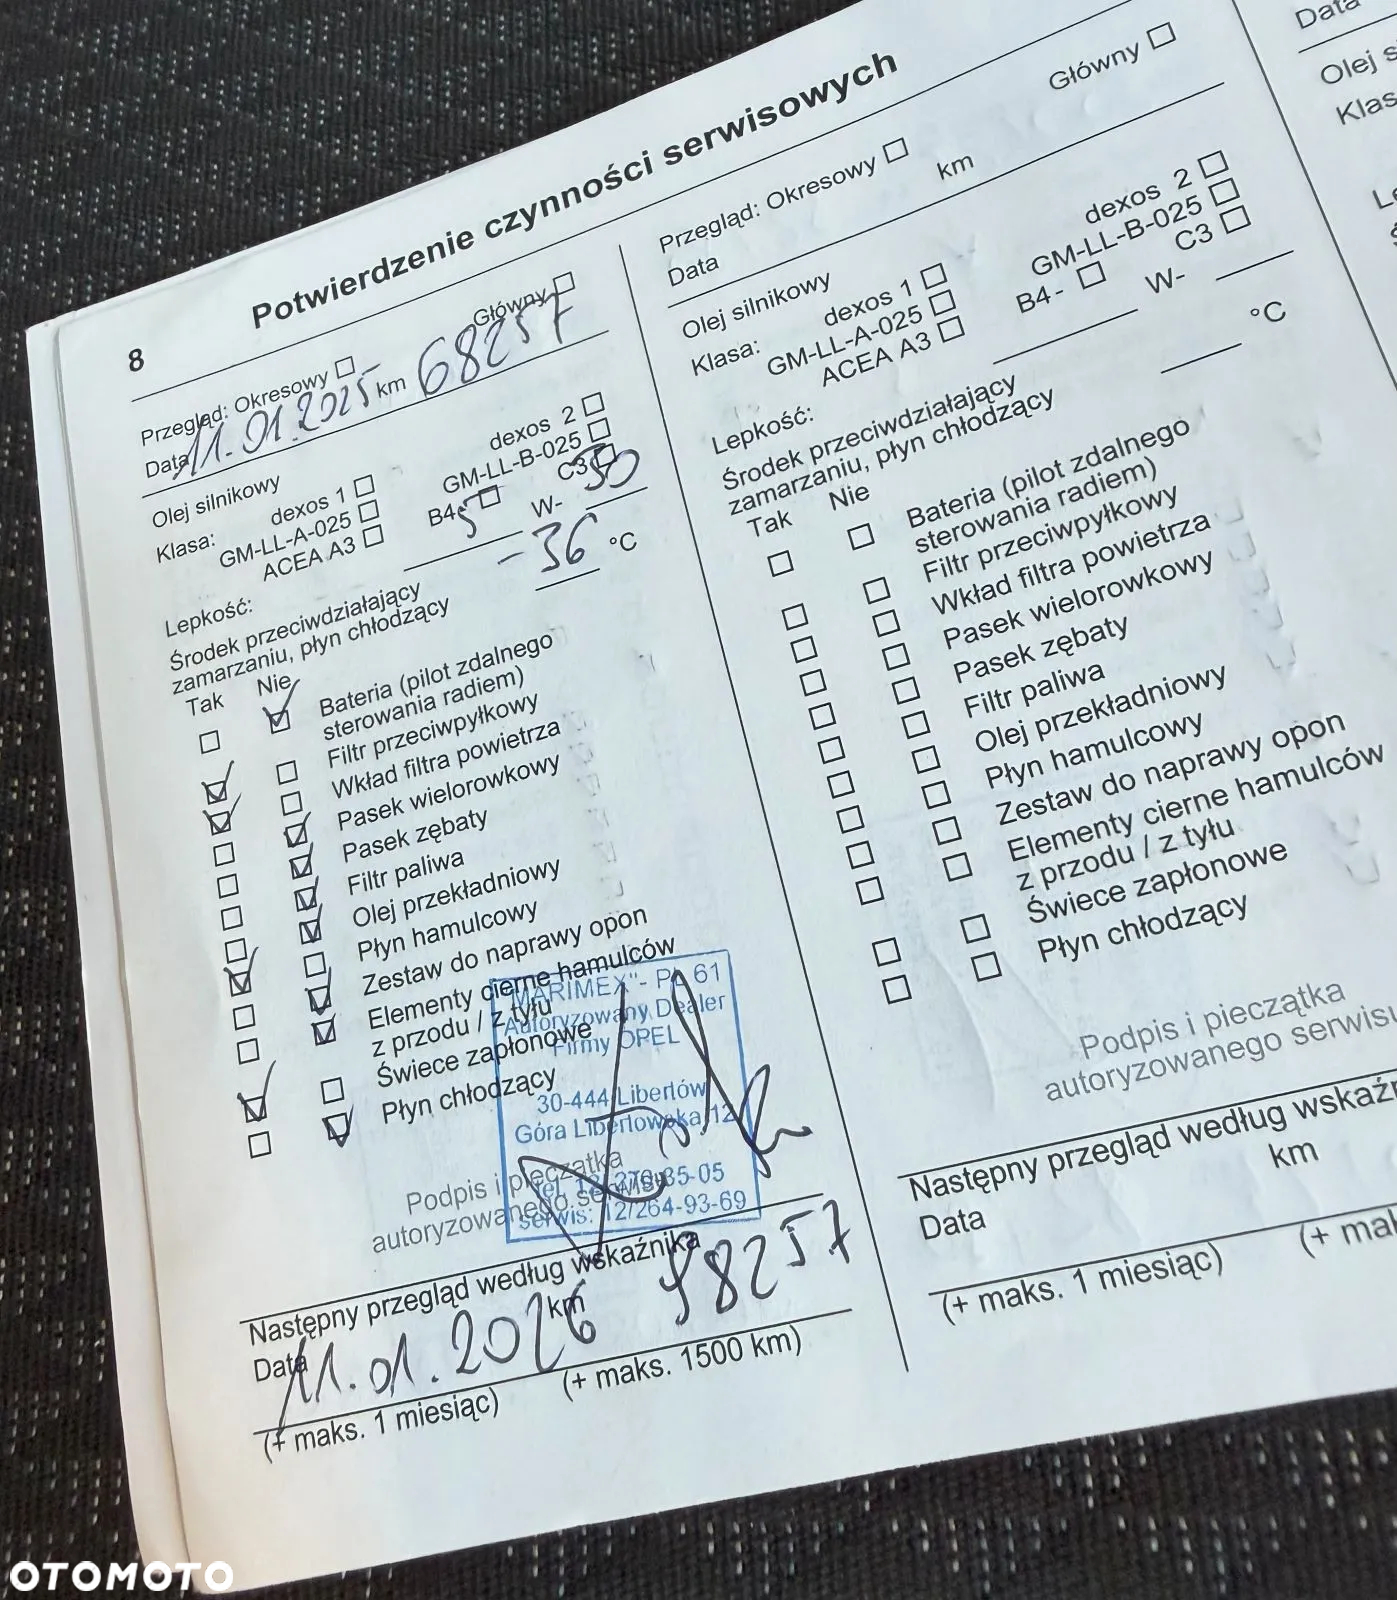 Potwierdzenie czynności serwisowych
8
Przegląd: Okresowy Główny
Data 11.01.2025 km 68257
Olej silnikowy
Klasa: dexos 1 dexos 2
GM-LL-A-025 GM-LL-B-025
ACEA A3 B4 C3
Lepkość: 5 W- 30
Środek przeciwdziałający
zamarzaniu, płyn chłodzący -36 °C
Tak Nie
Bateria (pilot zdalnego
sterowania radiem)
Filtr przeciwpyłkowy
Wkład filtra powietrza
Pasek wielorowkowy
Pasek zębaty
Filtr paliwa
Olej przekładniowy
Płyn hamulcowy
Zestaw do naprawy opon
Elementy cierne hamulców
z przodu / z tyłu
Świece zapłonowe
Płyn chłodzący
"MARIMEX"- PL 61
Autoryzowany Dealer
Firmy OPEL
30-444 Libertów
Góra Libertowska 12
tel. 12/270-35-05
serwis: 12/264-93-69
Podpis i pieczątka
autoryzowanego serwisu
Następny przegląd według wskaźnika
Data 11.01.2026 km 98257
(+ maks. 1 miesiąc) (+ maks. 1500 km)
Przegląd: Okresowy Główny
Data km
Olej silnikowy
Klasa: dexos 1 dexos 2
GM-LL-A-025 GM-LL-B-025
ACEA A3 B4- C3
Lepkość: W-
Środek przeciwdziałający
zamarzaniu, płyn chłodzący °C
Tak Nie
Bateria (pilot zdalnego
sterowania radiem)
Filtr przeciwpyłkowy
Wkład filtra powietrza
Pasek wielorowkowy
Pasek zębaty
Filtr paliwa
Olej przekładniowy
Płyn hamulcowy
Zestaw do naprawy opon
Elementy cierne hamulców
z przodu / z tyłu
Świece zapłonowe
Płyn chłodzący
Podpis i pieczątka
autoryzowanego serwisu
Następny przegląd według wskaźn
Data km
(+ maks. 1 miesiąc) (+ mak
Data
Olej s
Klas
OTOMOTO